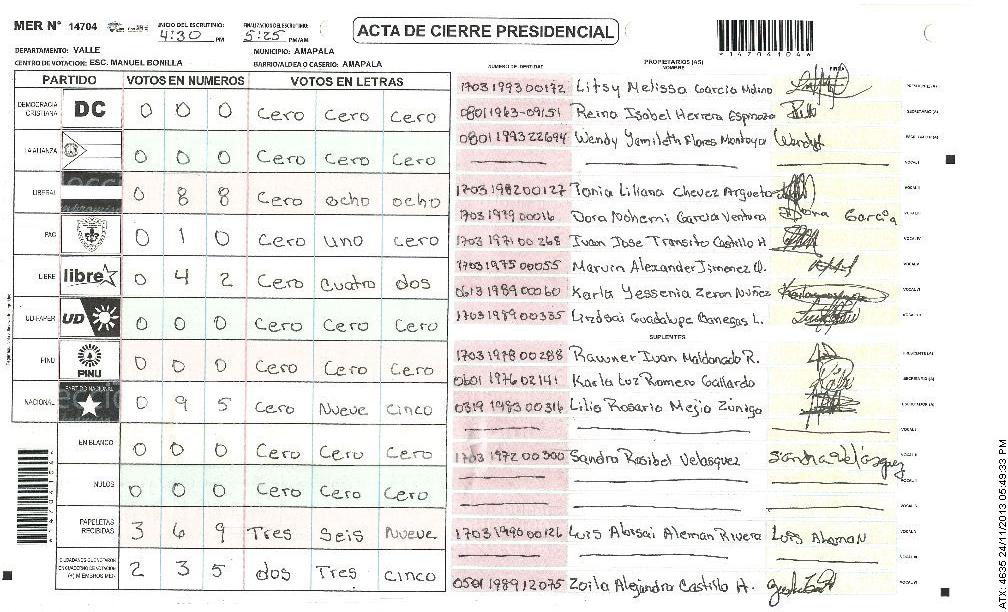 MER N° 14704
INICIO DEL ESCRUTINIO: 4:30 PM
FINALIZACION DEL ESCRUTINIO: 5:25 PM/AM
ACTA DE CIERRE PRESIDENCIAL
DEPARTAMENTO: VALLE
MUNICIPIO: AMAPALA
CENTRO DE VOTACION: ESC. MANUEL BONILLA
BARRIO/ALDEA O CASERIO: AMAPALA
PARTIDO VOTOS EN NUMEROS VOTOS EN LETRAS
DEMOCRACIA CRISTIANA DC 0 0 0 Cero Cero Cero
LA ALIANZA 0 0 0 Cero Cero Cero
LIBERAL 0 8 8 Cero ocho ocho
PAC 0 1 0 Cero uno cero
LIBRE libre 0 4 2 Cero Cuatro dos
UD-FAPER UD 0 0 0 Cero Cero Cero
PINU PINU 0 0 0 Cero Cero Cero
NACIONAL PARTIDO NACIONAL 0 9 5 Cero Nueve Cinco
EN BLANCO 0 0 0 Cero Cero Cero
NULOS 0 0 0 Cero Cero Cero
PAPELETAS RECIBIDAS 3 6 9 Tres Seis Nueve
CIUDADANOS QUE VOTARON EN CUADERNO DE VOTACION (+) MIEMBROS MER 2 3 5 dos Tres cinco
NUMERO DE IDENTIDAD PROPIETARIOS (AS) NOMBRE FIRMA
1703 1993 00172 Litsy Melissa Garcia Molino
0801 1963-09151 Reina Isabel Herrera Espinoza
0801 1993 22694 Wendy Yamileth Flores Montoya Wendy
1703 1982 00127 Tania Liliana Chevez Argueta
1703 1979 00016 Dora Nohemi Garcia Ventura Dora Garcia
1703 1971 00268 Juan Jose Transito Castillo H
1703 1975 00055 Marvin Alexander Jimenez O.
0613 1989 00060 Karla Yessenia Zeron Nuñez
1703 1989 00335 Lindsai Guadalupe Banegas L.
SUPLENTES
1703 1978 00288 Rawner Ivan Maldonado R.
0601 1976 02141 Karla Luz Romero Gallardo
0319 1983 00316 Lilis Rosario Mejio Zúniga
1703 1972 00300 Sandra Rosibel Velasquez Sandra Velásquez
1703 1995 00126 Luis Alonsai Aleman Rivera Luis Aleman
0501 1989 12075 Zoila Alejandra Castillo A.
ATX: 4635 24/11/2013 05:49:33 PM